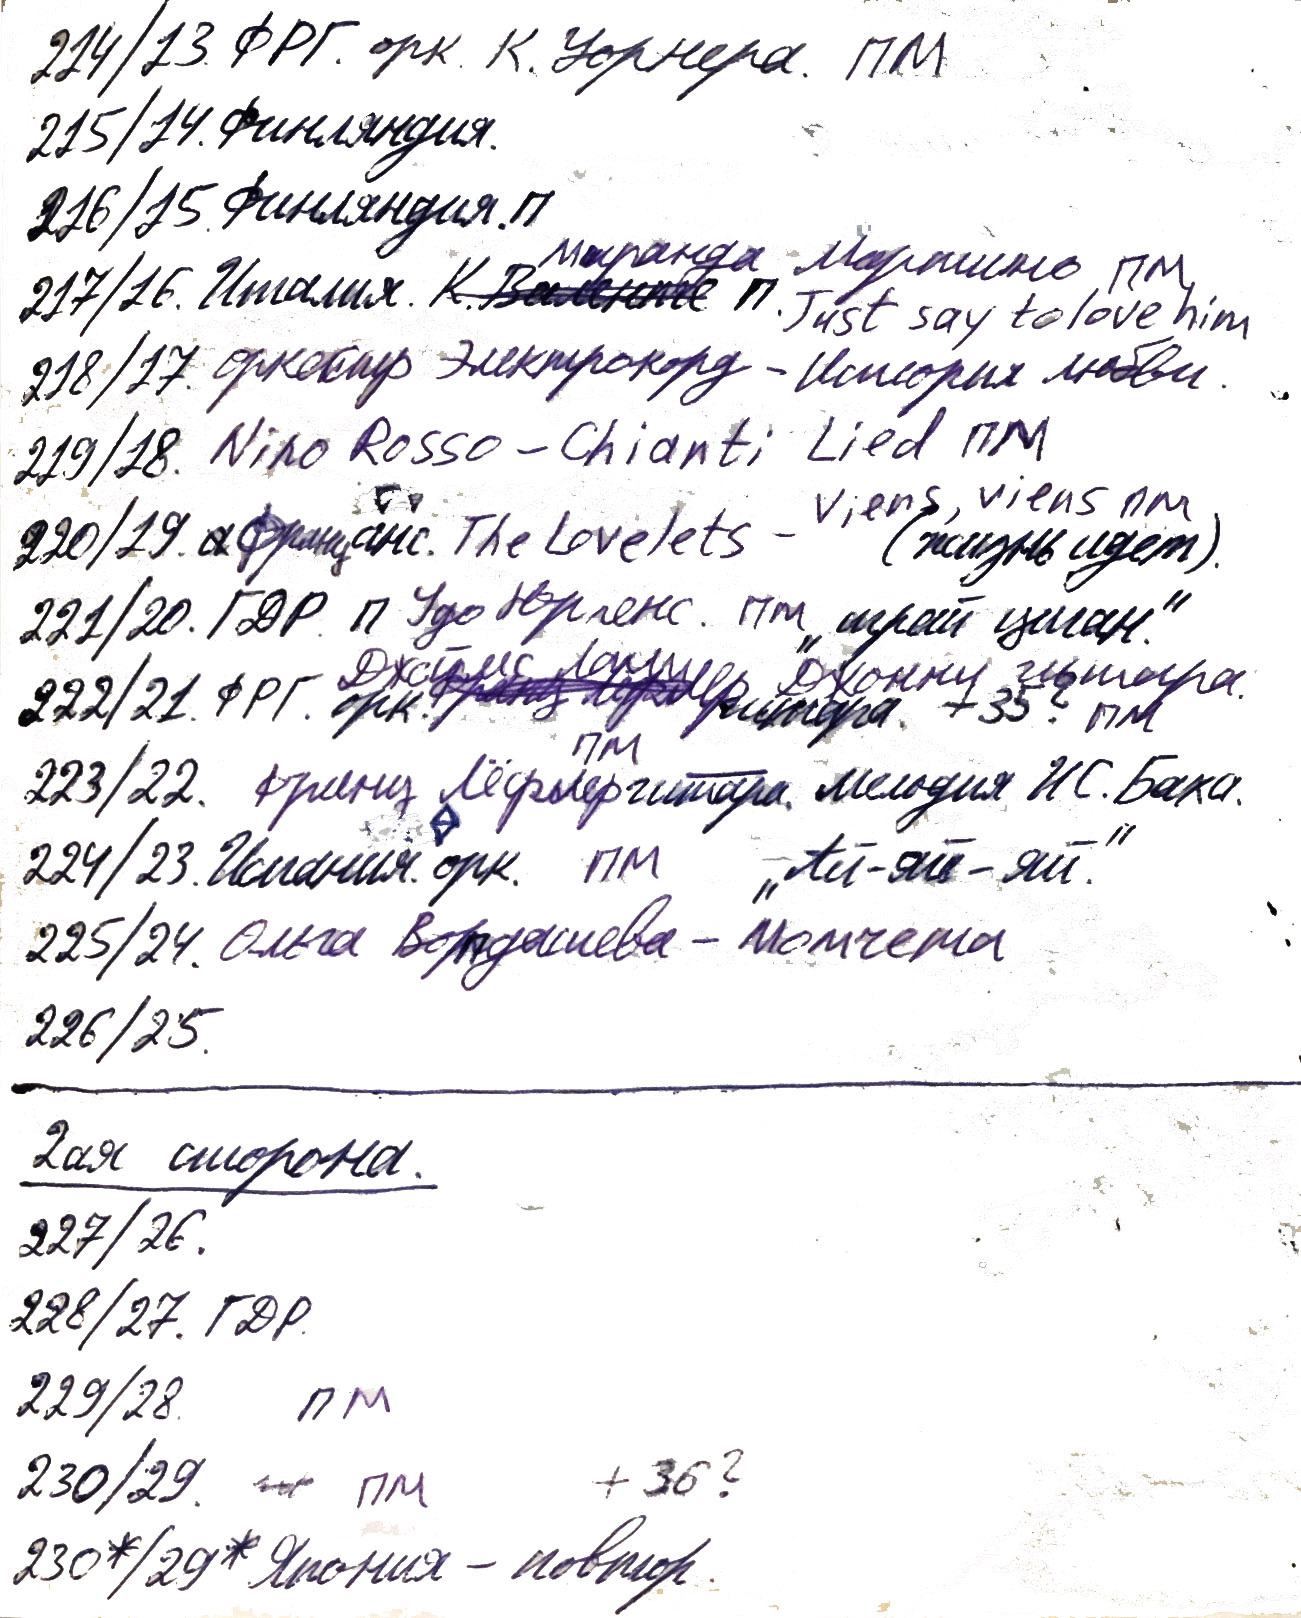 214/13. ФРГ. орк. К. Уорнера. ПМ
215/14. Финляндия.
216/15. Финляндия. П
Миранда Мартино ПМ
217/16. Италия. К. Валенте П. Just say to love him
218/17. оркестр Электрокорд - История любви.
219/18. Nino Rosso - Chianti Lied ПМ
Viens, viens ПМ
220/19. The Lovelets - (жизнь идет).
221/20. ГДР. П Удо Юргенс. ПМ „играй цыган."
Джеймс Ласт Джонни гитара.
222/21. ФРГ. орк. гитара. +35? ПМ
ПМ
223/22. Франц Лёфлер гитара. Мелодия И С. Баха.
224/23. Испания. орк. ПМ „Ай-яй-яй."
225/24. Ольга Борда​шева - Момчета
226/25.
2ая сторона.
227/26.
228/27. ГДР.
229/28. ПМ
230/29. ПМ +36?
230*/29* Япония - повтор.